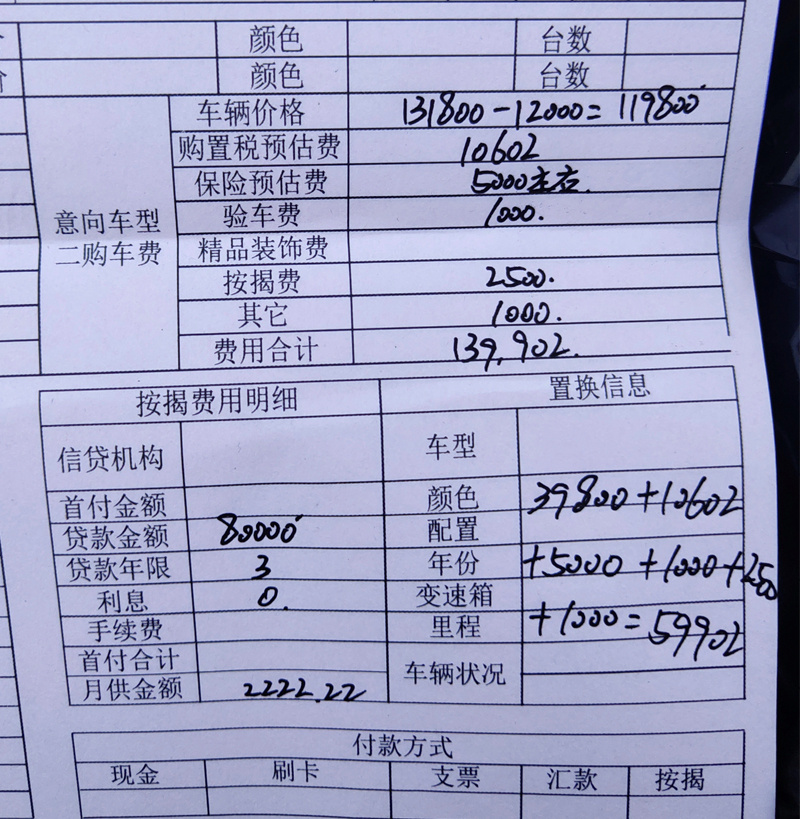 颜色 台数
价 颜色 台数
意向车型二购车费
车辆价格 131800-12000=119800
购置税预估费 10602
保险预估费 5000左右.
验车费 1000.
精品装饰费
按揭费 2500.
其它 1000.
费用合计 139,902.
按揭费用明细 置换信息
信贷机构 车型
首付金额 颜色 39800+10602
贷款金额 80000 配置
贷款年限 3 年份 +5000+1000+2500
利息 0. 变速箱
手续费 里程 +1000=59902
首付合计 车辆状况
月供金额 2222.22
付款方式
现金 刷卡 支票 汇款 按揭